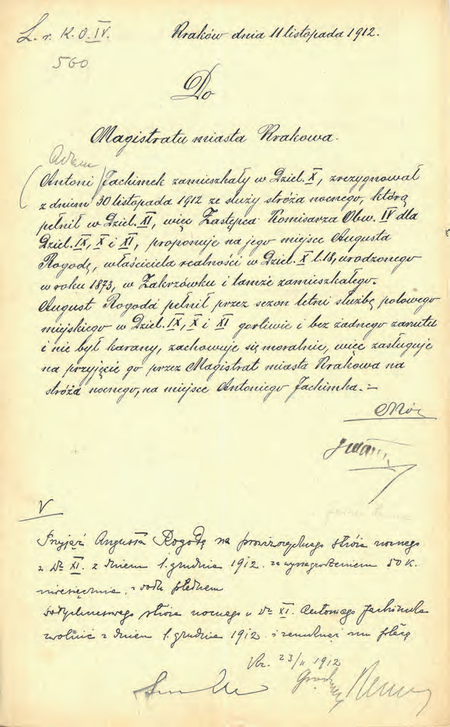 L. r. K. O. IV.
560
Kraków dnia 11 listopada 1912.
Do
Magistratu miasta Krakowa.
Adam
(Antoni) Jachimek zamieszkały w Dziel. X, zrezygnował
z dniem 30 listopada 1912 ze służy stróża nocnego, którą
pełnił w Dziel. XI, więc Zastępca Komisarza Obw. IV dla
Dziel. IX, X i XI, proponuje na jego miejsce Augusta
Rogodę, właściciela realności w Dziel. X l. 18, urodzonego
w roku 1873, w Zakrzówku i tamże zamieszkałego.
August Rogoda pełnił przez sezon letni służbę polowego
miejskiego w Dziel. IX, X i XI gorliwie i bez żadnego zarzutu
i nie był karany, zachowuje się moralnie, więc zasługuje
na przyjęcie go przez Magistrat miasta Krakowa na
stróża nocnego, na miejsce Antoniego Jachimka.
V
Przyjąć Augusta Rogodę na prowizorycznego stróża nocnego
z Dz. XI. z dniem 1. grudnia 1912. za wynagrodzeniem 50 K.
miesięcznie
dotychczasowego stróża nocnego w Dz. XI. Antoniego Jachimka
zwolnić z dniem 1. grudnia 1912. i płacę
Kr. 23/11 1912